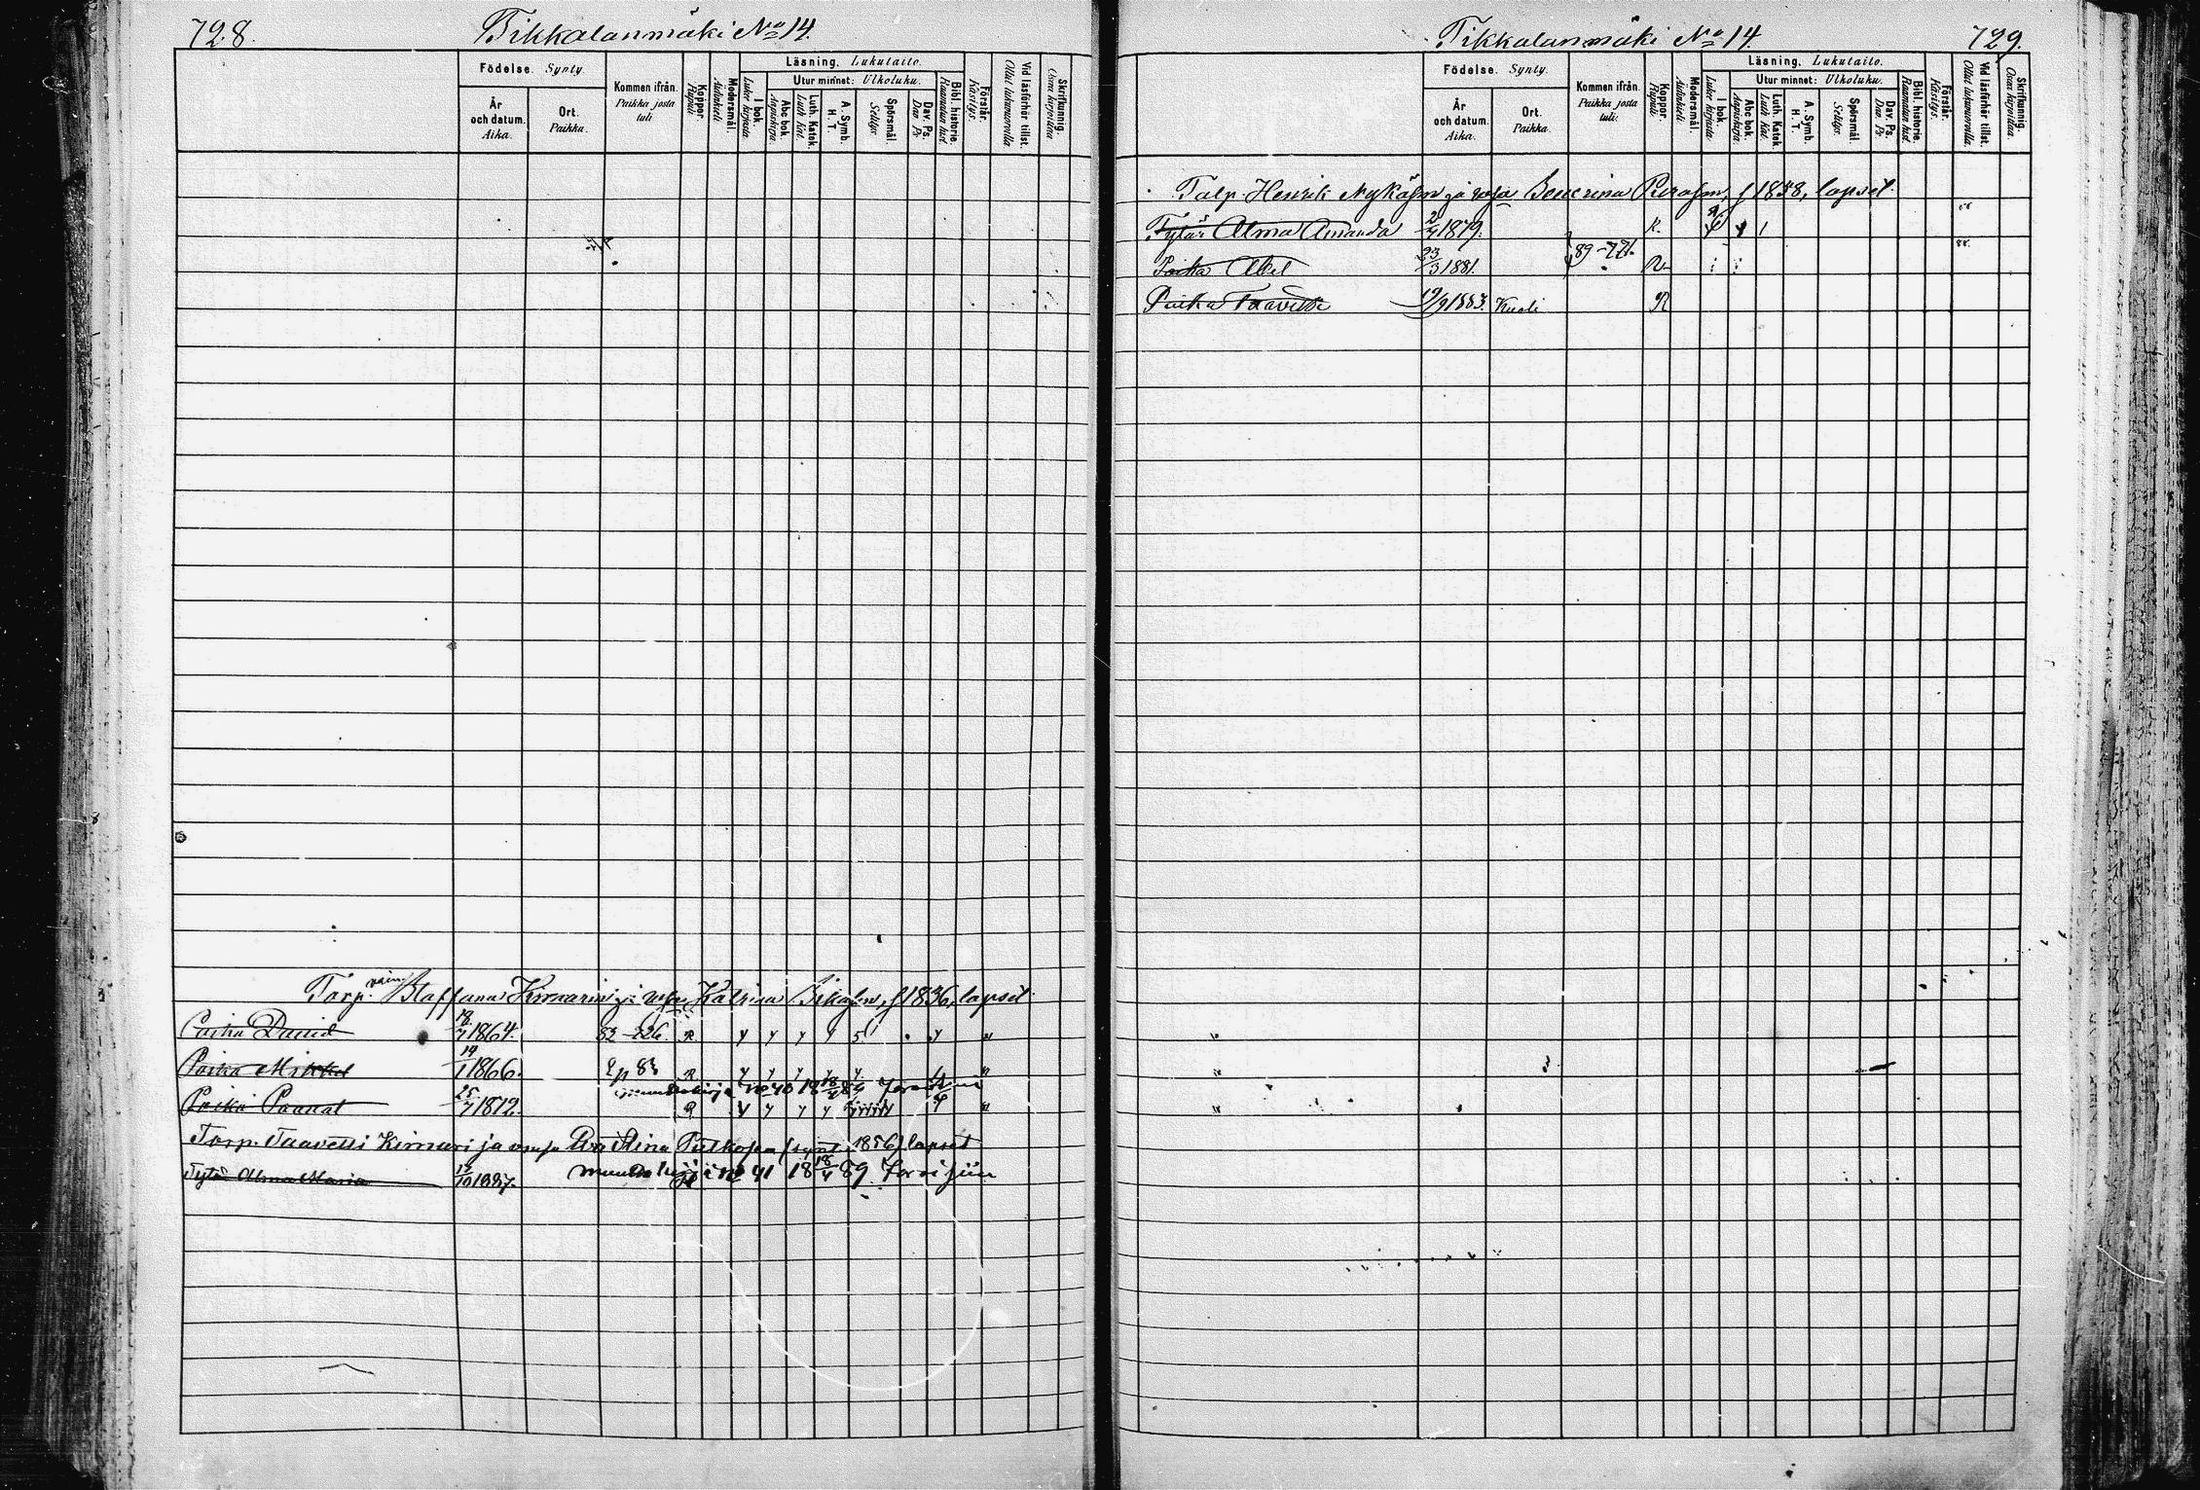 728. Tikkalanmäki No 14.
Födelse. Synty.
År och datum. Aika.
Ort. Paikka.
Kommen ifrån. Paikka josta tuli
Koppor. Rupuli
Modersmål. Äidinkieli
Läsning. Lukutaito.
I bok. Lukee kirjasta
Utur minnet: Ulkoluku.
Abc bok. Aapiskirja.
Luth. Katek. Luth. Kat.
A. Symb. H. T.
Spörsmål. Selitys.
Dav. Ps. Dav. Ps.
Bibl. historie. Raamatun hist.
Förstår. Käsitys.
Vid läsförhör tillst. Ollut lukuvuorolla
Skrifkunnig. Osaa kirjoittaa
Torp. vain. Staffana Kirnarin ja vaim. Katrina f 1836, lapset
Poika David 18/7 1864. 82-226 R
Poika Mikkel 19/1 1866. 83 R
muuttokirja No 40 18 18/4 84
Poika Paanal 25/7 1872. R
Torp. Taavetti Kirnari ja vaimo Stina (synt. 1856) lapset
Tytär Alma Maria 12/10 1887. No 41 18 18/4 89
Tikkalanmäki No 14. 729.
Födelse. Synty.
År och datum. Aika.
Ort. Paikka.
Kommen ifrån. Paikka josta tuli:
Koppor. Rupuli.
Modersmål. Äidinkieli
Läsning. Lukutaito.
I bok. Lukee kirjasta
Utur minnet: Ulkoluku.
Abc bok. Aapiskirja.
Luth. Katek. Luth. Kat.
A. Symb. H. T.
Spörsmål. Selitys.
Dav. Ps. Dav. Ps
Bibl. historie. Raamatun hist.
Förstår. Käsitys.
Vid läsförhör tillst. Ollut lukuvuorolla.
Skrifkunnig. Osaa kirjoittaa.
Talp. Henrik Nykäsen ja vaim. Severina f 1858, lapset.
Tytär Alma Amanda 2/4 1879. R.
Poika Abel 23/3 1881. 89-721. R
Poika Taavetti 19/9 1883. Kuoli R